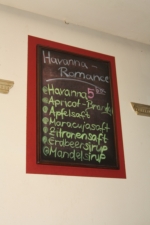 Havanna -
Romance
Havanna 5
Apricot-Brandy
Apfelsaft
Maracujasaft
Zitronensaft
Erdbeersirup
Mandelsirup